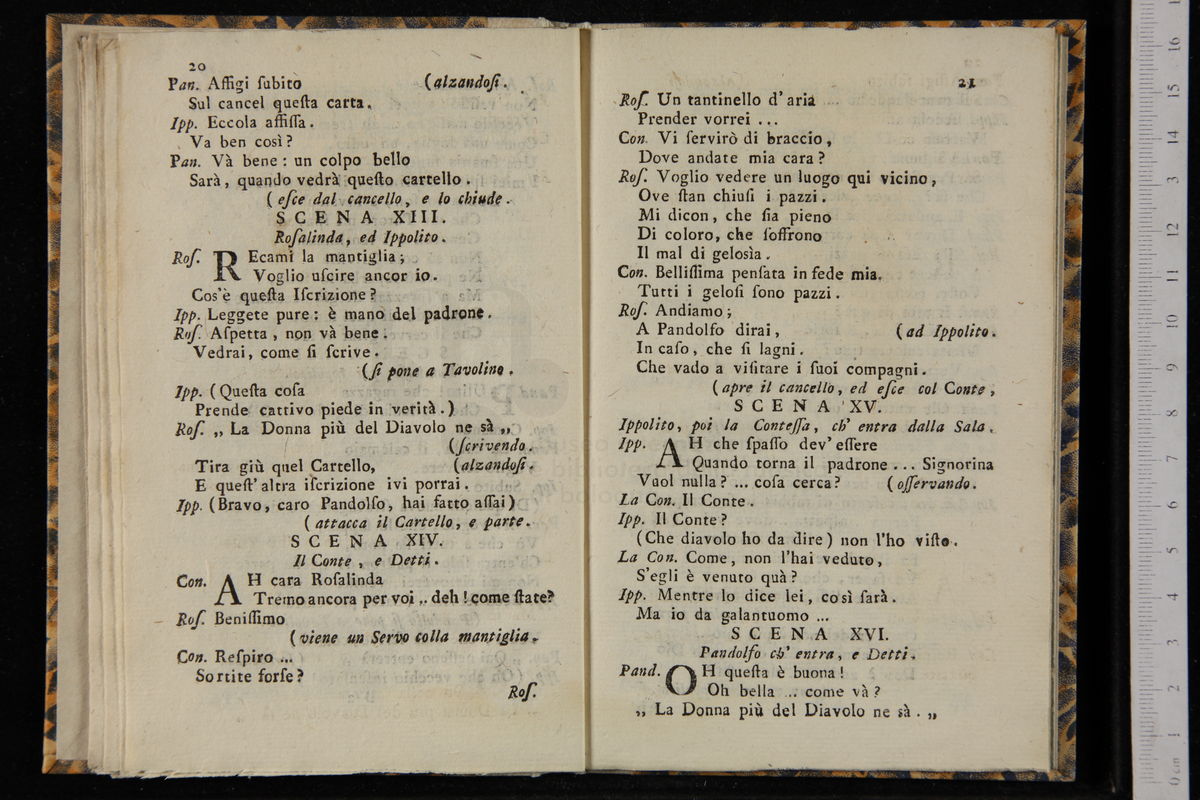 20
Pan. Affigi ſubito (alzandoſi.
Sul cancel queſta carta.
Ipp. Eccola affiſſa.
Va ben così?
Pan. Và bene: un colpo bello
Sarà, quando vedrà queſto cartello.
(eſce dal cancello, e lo chiude.
SCENA XIII.
Roſalinda, ed Ippolito.
Roſ. REcami la mantiglia;
Voglio uſcire ancor io.
Cos'è queſta Iſcrizione?
Ipp. Leggete pure: è mano del padrone.
Roſ. Aſpetta, non và bene.
Vedrai, come ſi ſcrive.
(ſi pone a Tavolino.
Ipp. (Queſta coſa
Prende cattivo piede in verità.)
Roſ. „ La Donna più del Diavolo ne sà „
(ſcrivendo.
Tira giù quel Cartello, (alzandoſi.
E queſt'altra iſcrizione ivi porrai.
Ipp. (Bravo, caro Pandolfo, hai fatto aſſai)
(attacca il Cartello, e parte.
SCENA XIV.
Il Conte, e Detti.
Con. AH cara Roſalinda
Tremo ancora per voi .. deh! come ſtate?
Roſ. Beniſſimo
(viene un Servo colla mantiglia.
Con. Reſpiro ...
Sortite forſe?
Roſ.
21
Roſ. Un tantinello d'aria
Prender vorrei ...
Con. Vi ſervirò di braccio,
Dove andate mia cara?
Roſ. Voglio vedere un luogo qui vicino,
Ove ſtan chiuſi i pazzi.
Mi dicon, che ſia pieno
Di coloro, che ſoffrono
Il mal di gelosìa.
Con. Belliſſima penſata in fede mia.
Tutti i geloſi ſono pazzi.
Roſ. Andiamo;
A Pandolfo dirai, (ad Ippolito.
In caſo, che ſi lagni.
Che vado a viſitare i ſuoi compagni.
(apre il cancello, ed eſce col Conte,
SCENA XV.
Ippolito, poi la Conteſſa, ch' entra dalla Sala.
Ipp. AH che ſpaſſo dev' eſſere
Quando torna il padrone ... Signorina
Vuol nulla? ... coſa cerca? (oſſervando.
La Con. Il Conte.
Ipp. Il Conte?
(Che diavolo ho da dire) non l'ho viſto.
La Con. Come, non l'hai veduto,
S'egli è venuto quà?
Ipp. Mentre lo dice lei, così ſarà.
Ma io da galantuomo ...
SCENA XVI.
Pandolfo ch' entra, e Detti.
Pand. OH queſta è buona!
Oh bella ... come và?
„ La Donna più del Diavolo ne sà. „